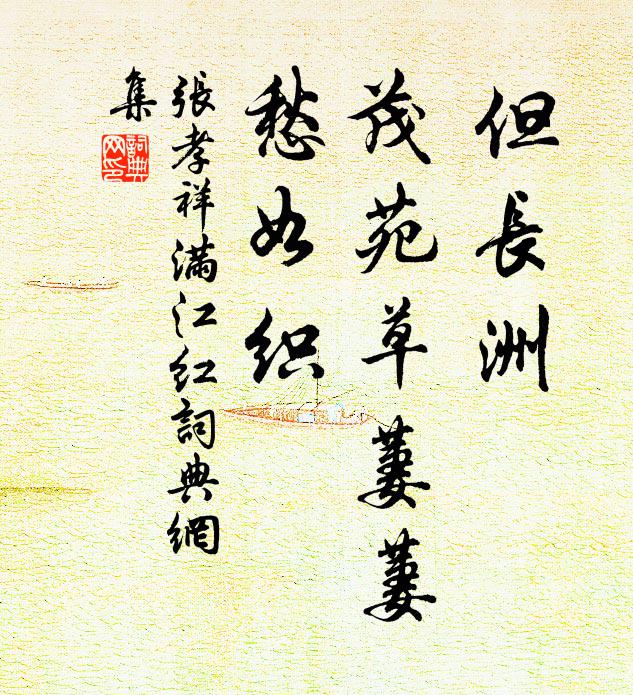 但長洲
茂苑草萋萋
愁如织
張孝祥滿江紅詞典網
集
詞典
网印